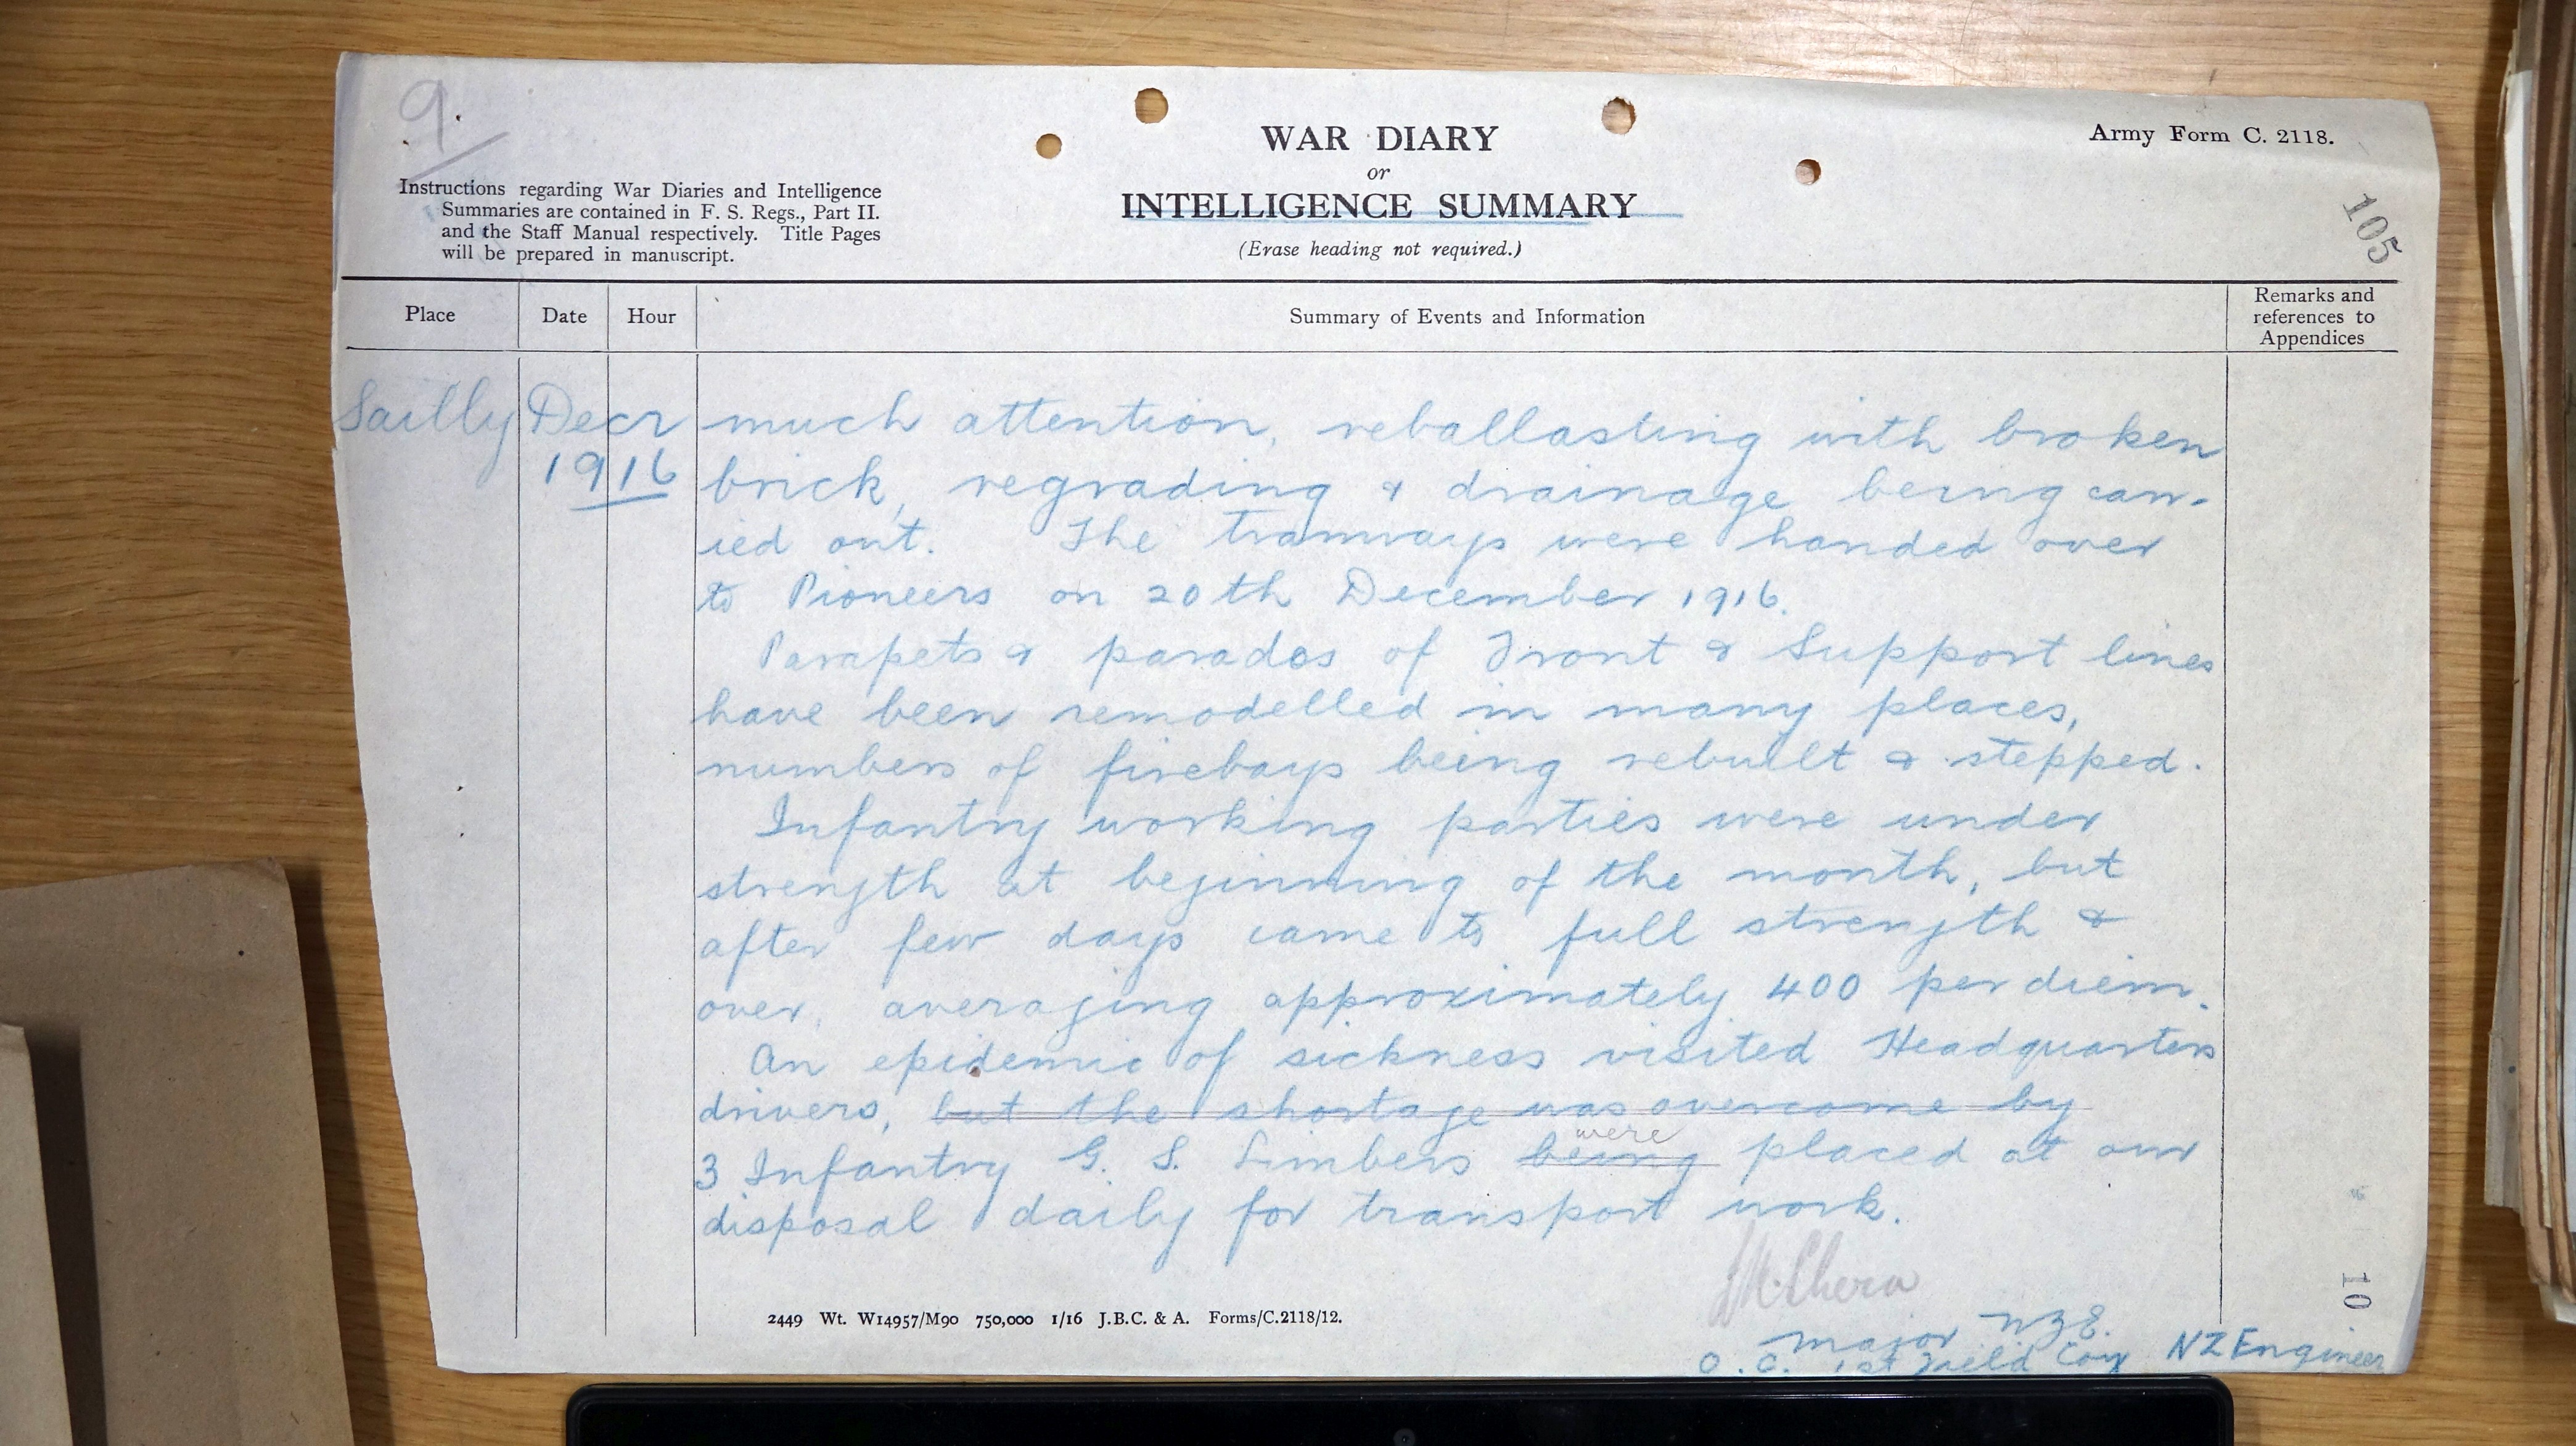 9.
WAR DIARY
or
INTELLIGENCE SUMMARY
(Erase heading not required.)
Army Form C. 2118.
105
Instructions regarding War Diaries and Intelligence
Summaries are contained in F. S. Regs., Part II.
and the Staff Manual respectively. Title Pages
will be prepared in manuscript.
Place Date Hour Summary of Events and Information Remarks and
references to
Appendices
Sailly Decr 1916
much attention, reballasting with broken
brick, regrading & drainage being carr-
ied out. The tramways were handed over
to Pioneers on 20th December 1916.
Parapets & parados of Front & Support lines
have been remodelled in many places,
numbers of firebays being rebuilt & stepped.
Infantry working parties were under
strength at beginning of the month, but
after few days came to full strength &
over, averaging approximately 400 per diem.
An epidemic of sickness visited Headquarters
drivers, but the shortage was overcome by
were
3 Infantry G. S. Limbers being placed at our
disposal daily for transport work.
Major NZE.
O. C. 1st Field Coy NZ Engineer
2449 Wt. W14957/M90 750,000 1/16 J.B.C. & A. Forms/C.2118/12.
10